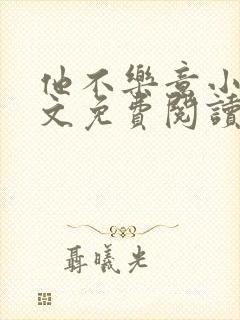 他不樂意小
文免費閱讀
聶曦光